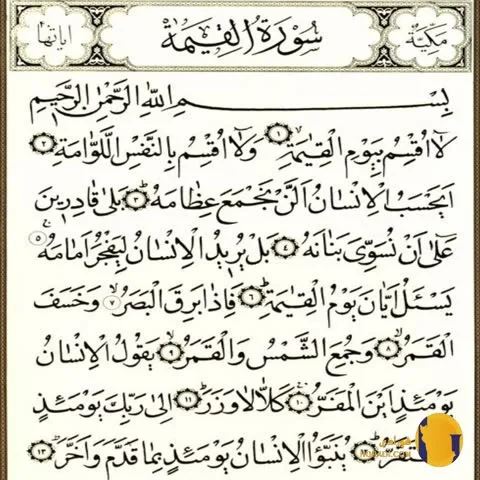 مكية سورة القيمة اياتها
بسم الله الرحمن الرحيم
لا اقسم بيوم القيمة ١ ولا اقسم بالنفس اللوامة ٢
ايحسب الانسان الن نجمع عظامه ٣ بلى قادرين
على ان نسوى بنانه ٤ بل يريد الانسان ليفجر امامه ٥
يسئل ايان يوم القيمة ٦ فاذا برق البصر ٧ وخسف
القمر ٨ وجمع الشمس والقمر ٩ يقول الانسان
يومئذ اين المفر ١٠ كلا لا وزر ١١ الى ربك يومئذ
ينبؤا الانسان يومئذ بما قدم واخر ١٣